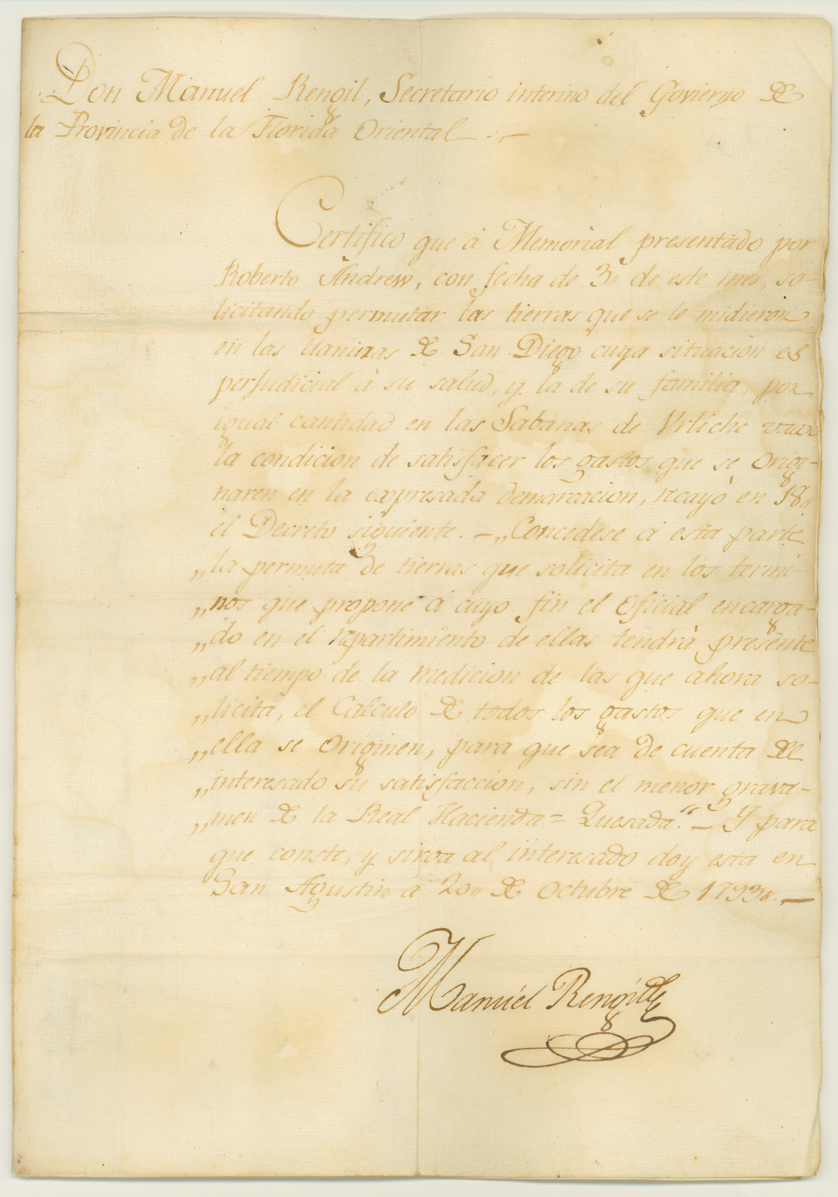 Don Manuel Rengil, Secretario interino del Govierno de
la Provincia de la Florida Oriental.—
Certifico que á Memorial presentado por
Roberto Andrew, con fecha de 3,, de este mes, so-
licitando permutar las tierras que se le midieron
en las llanuras de San Diego cuya situacion es
perjudicial á su salud, y la de su familia, por
igual cantidad en las Sabanas de
la condicion de satisfacer los gastos que se origi-
naren en la expresada demarcacion, recayó en 18,,
el Decreto siguiente. —,,Concedese á esta parte
,,la permuta de tierras que solicita en los termi-
,,nos que propone á cuyo fin el Oficial encarga-
,,do en el repartimiento de ellas tendrá presente
,,al tiempo de la medicion de las que ahora so-
,,licita, el Calculo de todos los gastos que en
,,ella se originen, para que sea de cuenta del
,,interesado su satisfaccion, sin el menor grava-
,,men de la Real Hacienda= Quesada."— Y para
que conste, y sirva al interesado doy esta en
San Agustin á 20,, de Octubre de 1793,,.—
Manuél Rengil